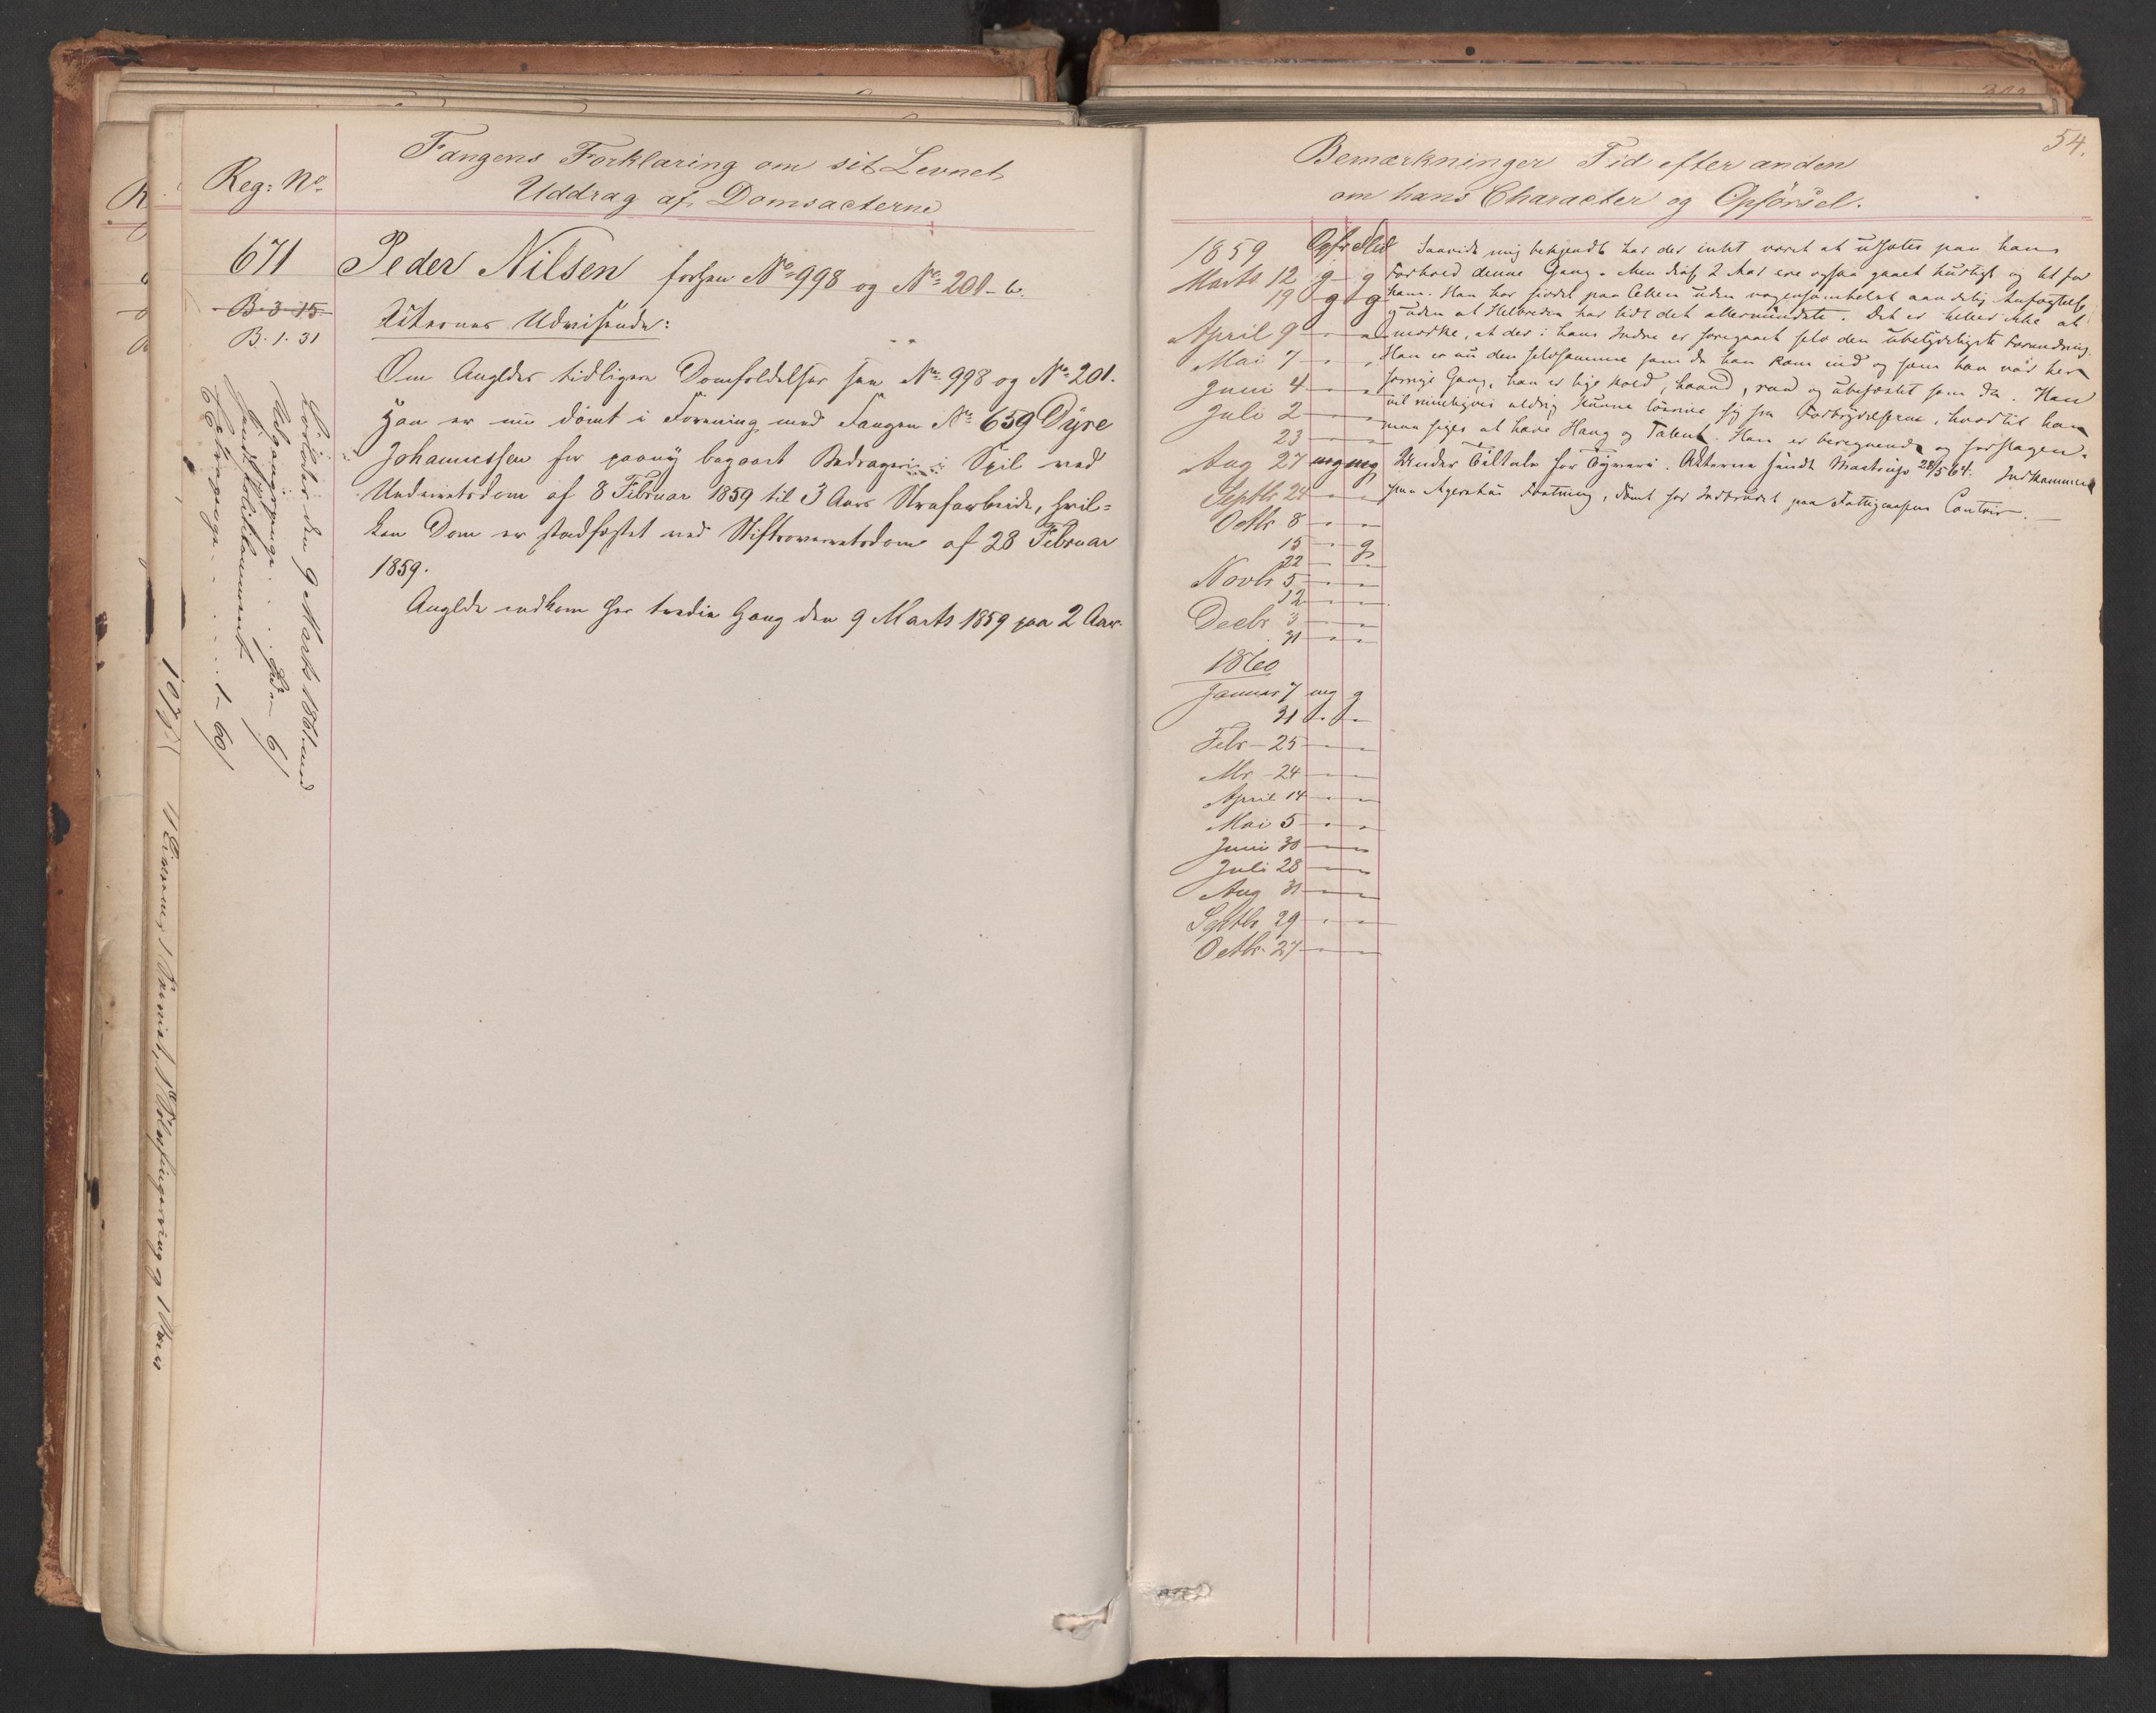 Reg: No
Fangens Forklaring om sit Levnet,
Uddrag af Domsacterne
671
B. 3. 15.
B. 1. 31
Peder Nilsen forhen No 998 og No 201-b.
Akternes Udvisende:
Om Angldes tidligere Domfældelser see No 998 og No 201.
Han er nu dömt i Forening med Fangen No 659 Dÿre
Johannessen for paany begaaet Bedrageri i Spil ved
Underretsdom af 8 Februar 1859 til 3 Aars Strafarbeide, hvil=
ken Dom er stadfæstet ved Stiftsoverretsdom af 28 Februar
1859.
Anglde indkom her tredie Gang den 9 Marts 1859 paa 2 Aar.
Löslades den 9 Marts 1861 med
Udgangspenge
1 - 60
1 Tölfingerring og 1
54.
Bemærkninger Tid efter anden
om hans Character og Opförsel.
1859 Opfr Flid
Marts 12 g g
19 g g
April 9
Mai 7
Juni 4
Juli 2
23
Aug 27 mg mg
Septbr 24
Octbr 8
15 g
22
Novbr 5
12
Decbr 3
31
1860
Januar 7 mg g
31
Febr 25
Mr 24
April 14
Mai 5
Juni 30
Juli 28
Aug 31
Septbr 29
Octbr. 27
Saavidt mig bekjendt har der intet været at udsætte paa hans
Forhold denne Gang. Men disse 2 Aar ere ogsaa gaaet hurtigt og let for
ham. Han har siddet paa Cellen uden nogensomhelst aandelig
og uden at Helbreden har lidt det allermindste. Det er heller ikke at
mærke, at der i hans Indre er foregaaet selv den ubetydeligste Forandring.
Han er nu den selvsamme som da han kom ind og som han var her
forrige Gang, han er lige kold, haard, raa og ubefæstet som da. Han
vil rimeligvis aldrig kunne løsrive sig fra Forbrydelserne, hvortil han
maa siges at have Hang og Talent. Han er beregnende og forslagen.
Under Tiltale for Tyveri. Akterne sendt Mastrup 28/5 64. Indkommen
paa Agershus Fæstning, dömt for Indbrudet paa Fattigvæsenets Contoir.